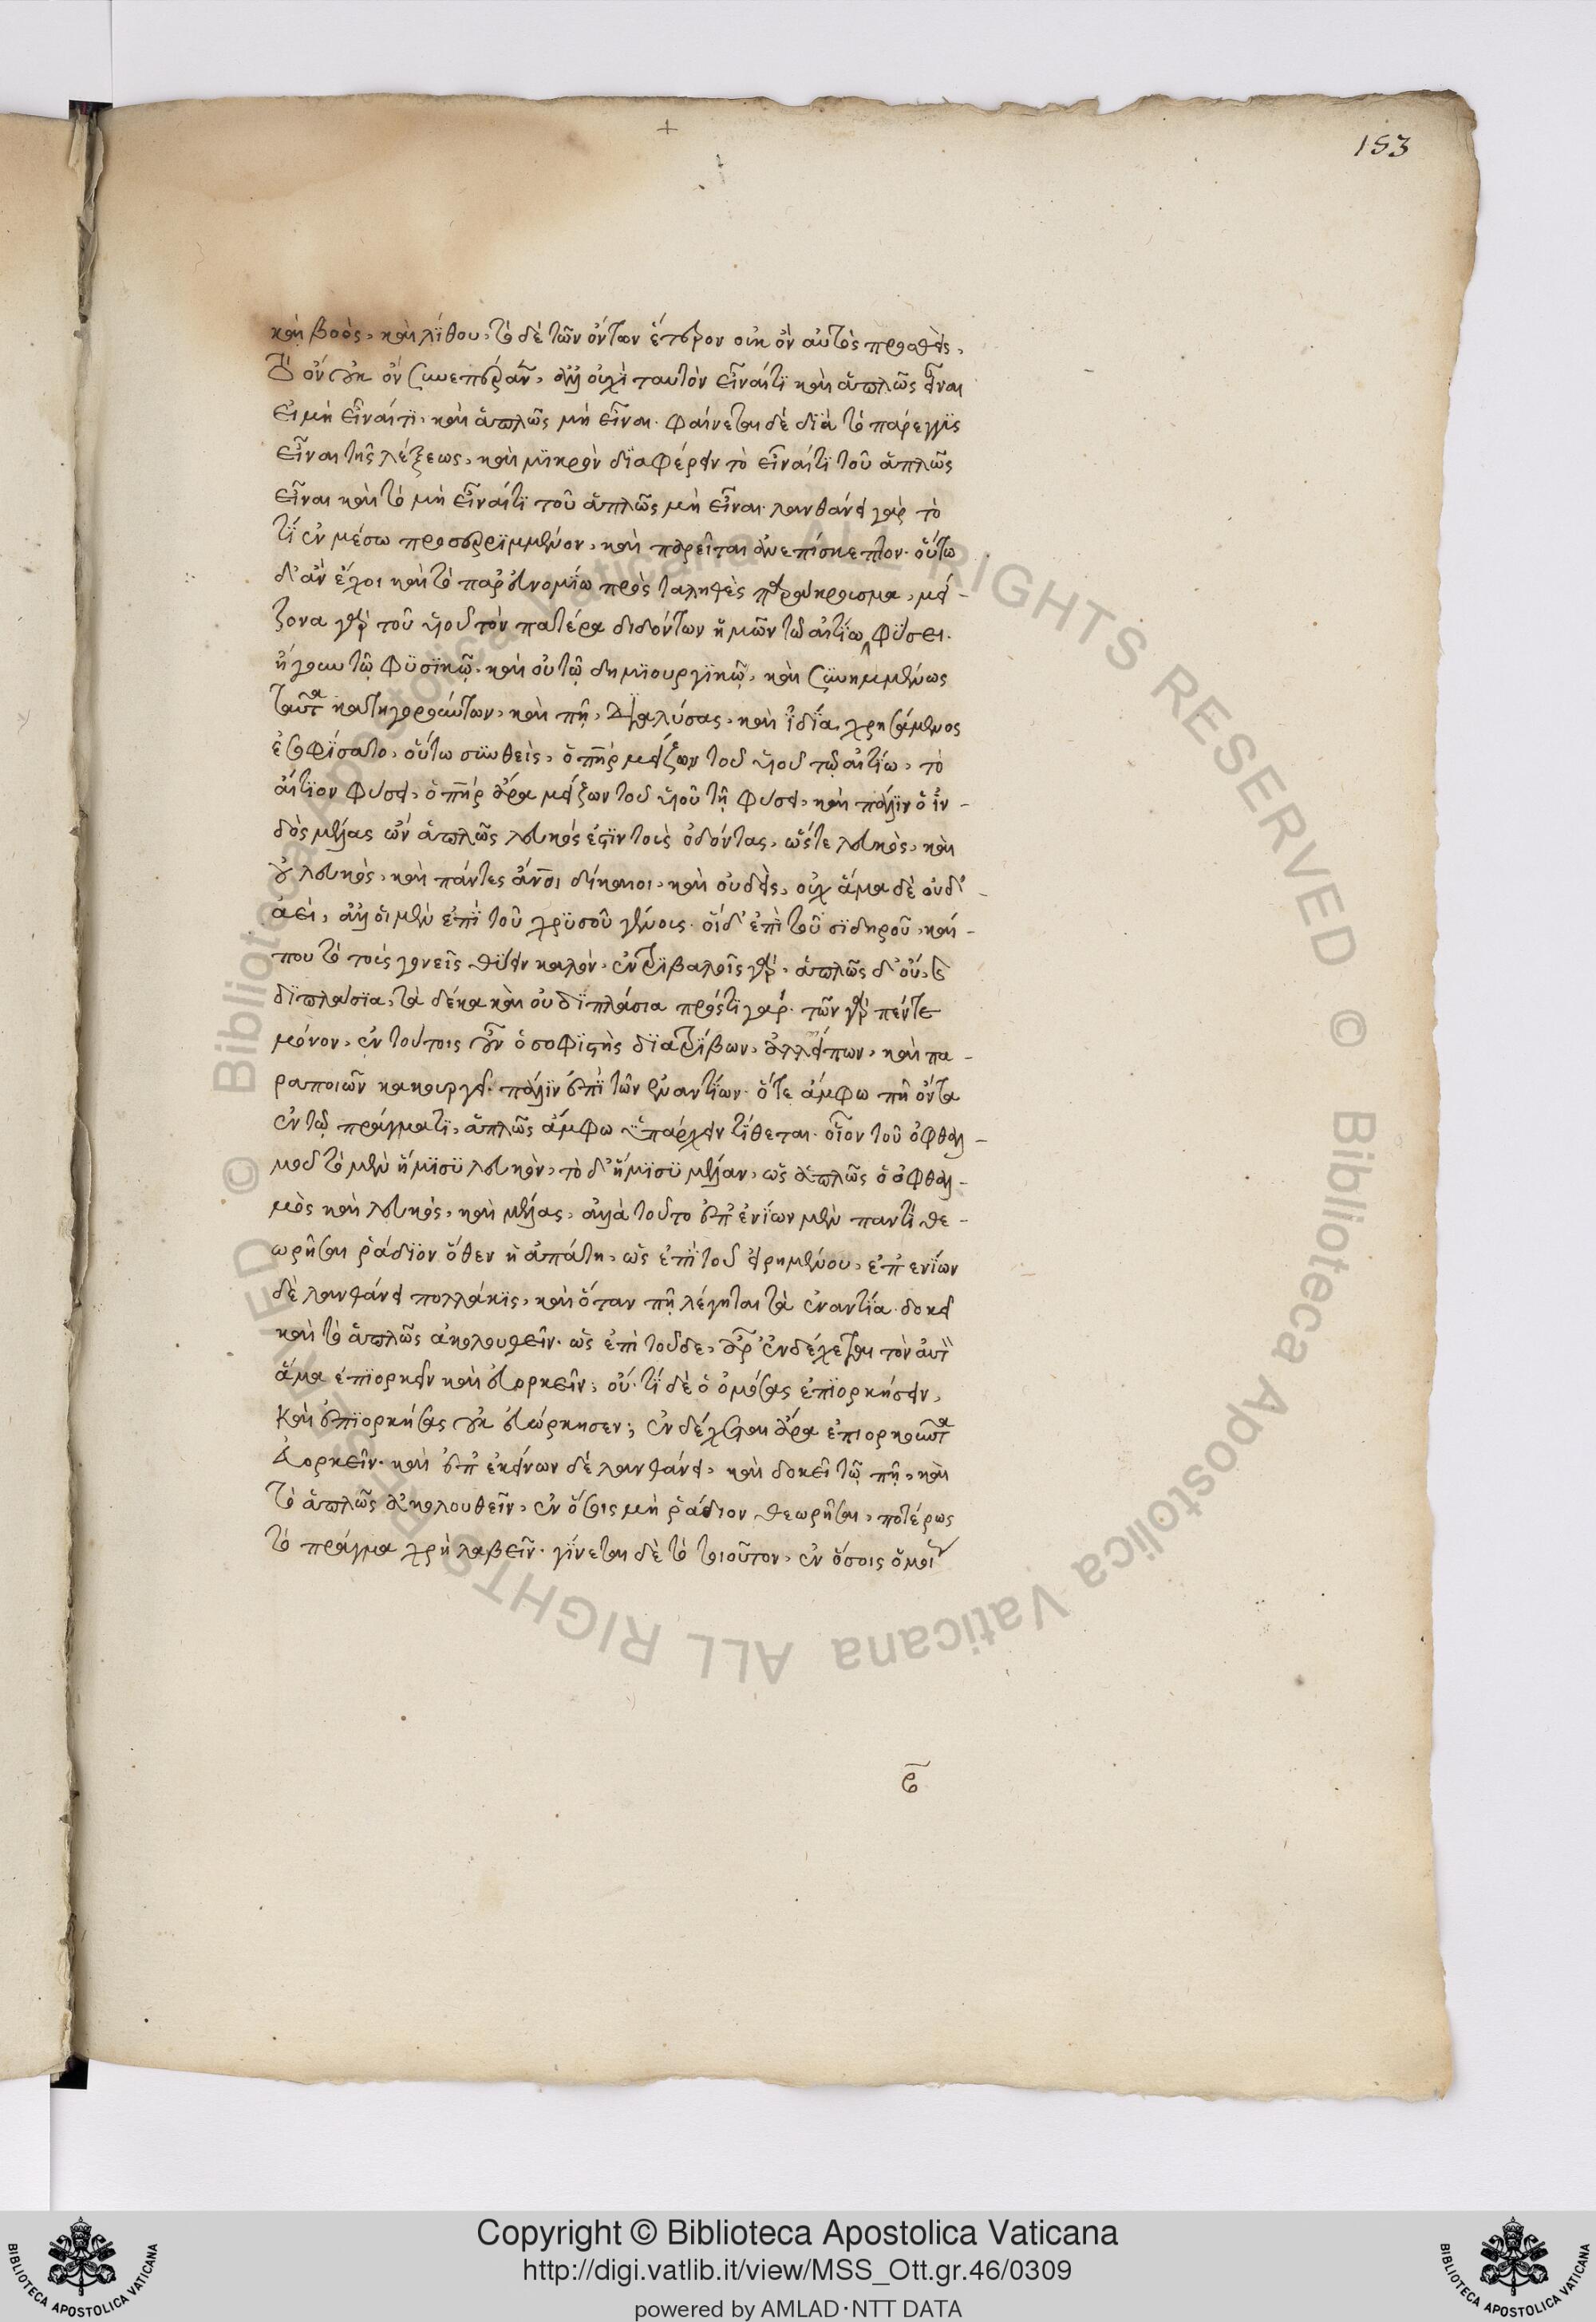 153
καὶ βοὸς, καὶ λίθου, τὸ δὲ τῶν ὄντων ἕτερον οὐκ ὂν αὐτὸς προσθεὶς,
τὸ ὂν οὐκ ὂν συνεπέρανεν, ἀλλ' οὐχὶ ταυτὸν εἶναί τι καὶ ἁπλῶς εἶναι
εἰ μὴ εἶναί τι, καὶ ἁπλῶς μὴ εἶναι. φαίνεται δὲ διὰ τὸ πάρεγγυς
εἶναι τῆς λέξεως, καὶ μικρὸν διαφέρειν τὸ εἶναί τι τοῦ ἁπλῶς
εἶναι καὶ τὸ μὴ εἶναί τι τοῦ ἁπλῶς μὴ εἶναι. λανθάνει γὰρ τὸ
τί ἐν μέσω προσερριμμένον, καὶ ἀνεπίσκεπτον. οὕτω
δ' ἂν ἔχοι καὶ τὸ παρ' εὐνομίω πρὸς ταληθὲς, μεί-
ζονα γὰρ τοῦ υἱοῦ τὸν πατέρα διδόντων ἡμῶν τῶ αἰτίω, φύσει.
ἤγουν τῶ φυσικῶ. καὶ οὐ τῶ δημιουργικῶ, καὶ συνημμένως
ταῦτα κατηγορούντων, καὶ πῆ, διαλύσας, καὶ ἰδία χρησάμενος
ἐσοφίσατο, οὕτω συνθεὶς, ὁ πατὴρ μείζων τοῦ υἱοῦ τῶ αἰτίω, τὸ
αἴτιον φύσει, ὁ πατὴρ ἄρα μείζων τοῦ υἱοῦ τῆ φύσει, καὶ πάλιν ὁ ἰν-
δὸς μέλας ὢν ἁπλῶς λευκός ἐστιν τοὺς ὀδόντας, ὥστε λευκὸς, καὶ
οὐ λευκὸς, καὶ πάντες ἄνθρωποι δίκαιοι, καὶ οὐδεὶς, οὐχ ἅμα δὲ οὐδ'
ἀεὶ, ἀλλ' οἱ μὲν ἐπὶ τοῦ χρυσοῦ γένους. οἱ δ' ἐπὶ τοῦ σιδηροῦ, καί
που τὸ τοὺς γονεῖς θύειν καλὸν, ἐν τριβαλοῖς γὰρ, ἁπλῶς δ' οὔ,
διπλάσια, τὰ δέκα καὶ οὐ διπλάσια πρός τι γάρ. τῶν γὰρ πέντε
μόνον, ἐν τούτοις οὖν ὁ σοφιστὴς διατρίβων, ἐλλείπων, καὶ πα-
ραποιῶν κακουργεῖ. πάλιν ἐπὶ τῶν ἐναντίων. ὅτε ἄμφω πῆ ὄντα
ἐν τῶ πράγματι, ἁπλῶς ἄμφω ὑπάρχειν τίθεται. οἷον τοῦ ὀφθαλ-
μοῦ τὸ μὲν ἥμισυ λευκὸν, τὸ δ' ἥμισυ μέλαν, ὡς ἁπλῶς ὁ ὀφθαλ-
μὸς καὶ λευκὸς, καὶ μέλας, ἀλλὰ τοῦτο ἐπ' ἐνίων μὲν παντὶ θε-
ωρῆσαι ῥάδιον ὅθεν ἡ ἀπάτη, ὡς ἐπὶ τοῦ εἰρημένου, ἐπ' ενίων
δὲ λανθάνει πολλάκις, καὶ ὅταν πῆ λέγηται τὰ ἐναντία. δοκεῖ
καὶ τὸ ἁπλῶς ἀκολουθεῖν. ὡς ἐπὶ τοῦδε, ἆρ' ἐνδέχεται τὸν αὐτὸν
ἅμα ἐπιορκεῖν καὶ εὐορκεῖν; οὔ. τί δὲ ὁ ὀμόσας ἐπιορκήσειν,
καὶ ἐπιορκήσας οὐκ εὐώρκησεν; ἐνδέχεται ἄρα ἐπιορκοῦντα
εὐορκεῖν. καὶ ἐπ' ἐκείνων δὲ λανθάνει, καὶ δοκεῖ τῶ πῆ, καὶ
τὸ ἁπλῶς ἀκολουθεῖν, ἐν ὅσοις μὴ ῥάδιον θεωρῆσαι, ποτέρως
τὸ πρᾶγμα χρὴ λαβεῖν. γίνεται δὲ τὸ τοιοῦτον, ἐν ὅσοις ὁμοί
Copyright © Biblioteca Apostolica Vaticana
http://digi.vatlib.it/view/MSS_Ott.gr.46/0309
powered by AMLAD·NTT DATA
BIBLIOTECA APOSTOLICA VATICANA
BIBLIOTECA APOSTOLICA VATICANA